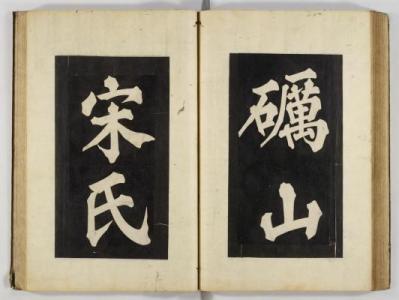 礪山
宋氏